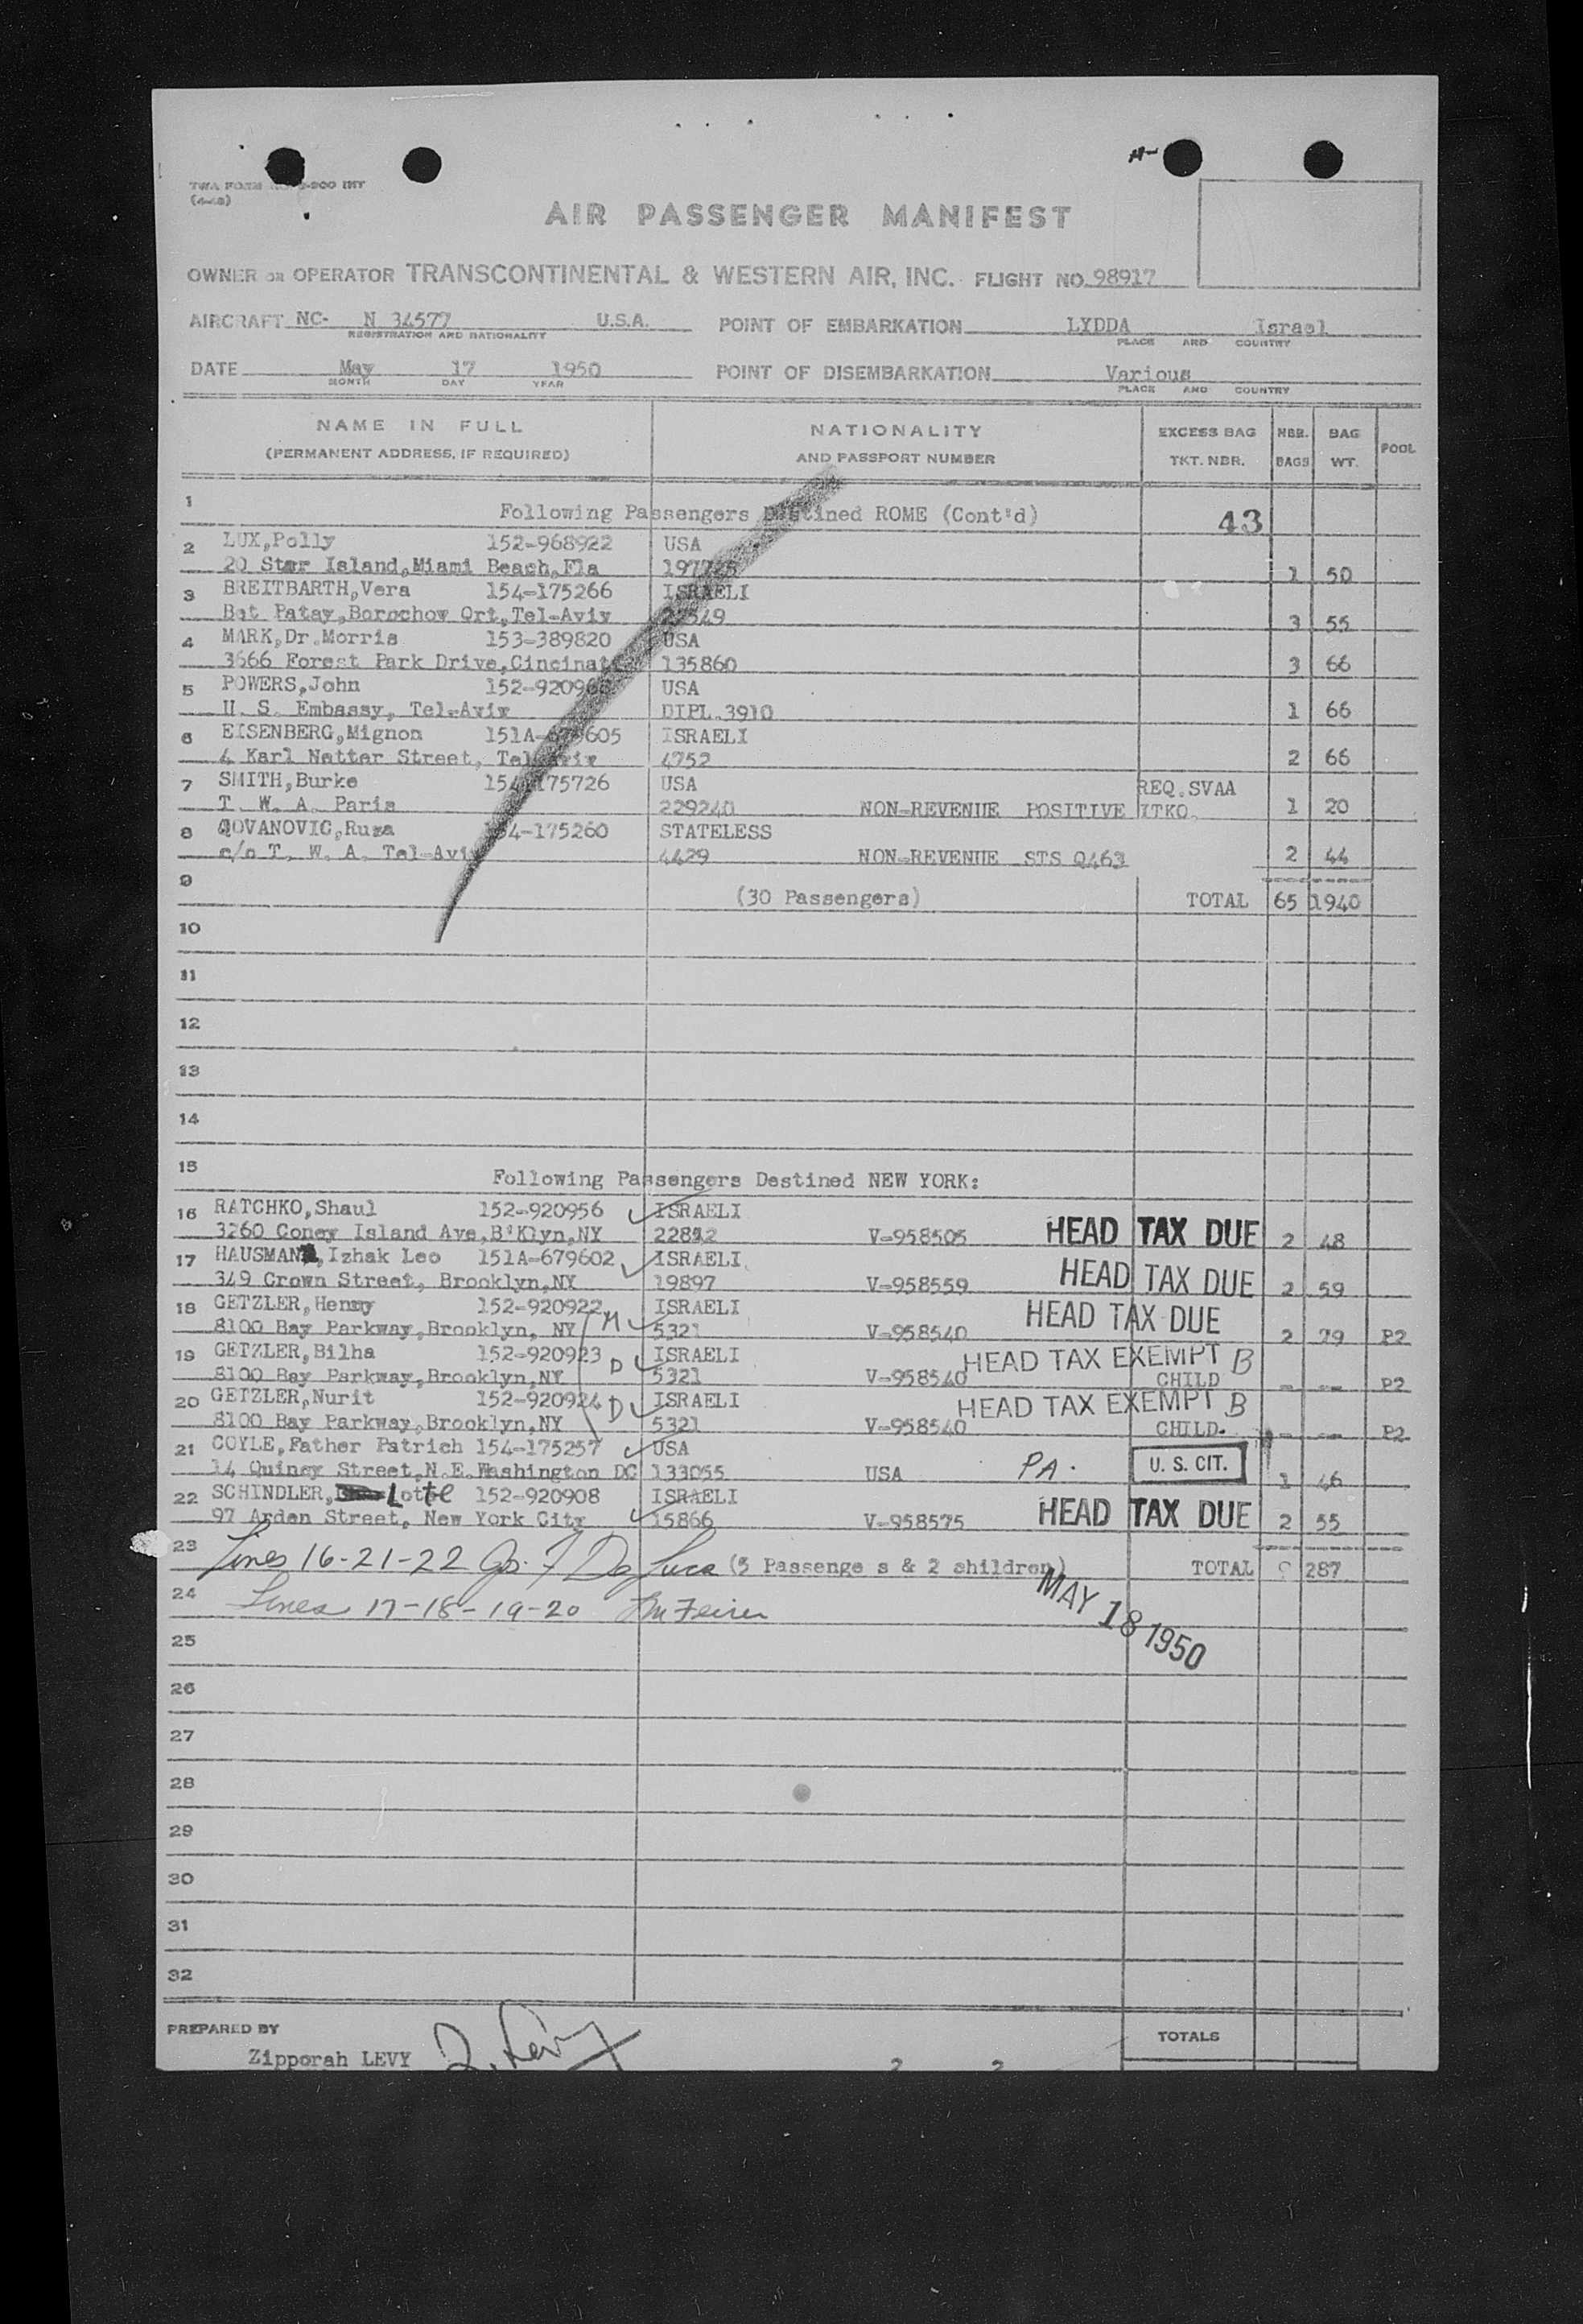 TWA FORM
(4-48)
AIR PASSENGER MANIFEST
OWNER OR OPERATOR TRANSCONTINENTAL & WESTERN AIR, INC. FLIGHT NO. 98917
AIRCRAFT NC- N 34577 U.S.A. POINT OF EMBARKATION LYDDA Israel
REGISTRATION AND NATIONALITY PLACE AND COUNTRY
DATE May 17 1950 POINT OF DISEMBARKATION Various
MONTH DAY YEAR PLACE AND COUNTRY
NAME IN FULL NATIONALITY EXCESS BAG NBR. BAG POOL
(PERMANENT ADDRESS, IF REQUIRED) AND PASSPORT NUMBER TKT. NBR. BAGS WT.
1 Following Passengers Destined ROME (Cont'd) 43
2 LUX,Polly 152-968922 USA
20 Star Island,Miami Beach,Fla 1 50
3 BREITBARTH,Vera 154-175266 ISRAELI
Bat Patay,Borochow Qrt,Tel-Aviv 3 55
4 MARK,Dr.Morris 153-389820 USA
3666 Forest Park Drive,Cincinati 135860 3 66
5 POWERS,John USA
U. S. Embassy, Tel-Aviv DIPL.3910 1 66
6 EISENBERG,Mignon ISRAELI
4 Karl Netter Street, Tel-Aviv 4752 2 66
7 SMITH,Burke 154-175726 USA REQ.SVAA
T. W. A. Paris 229240 NON-REVENUE POSITIVE ITKO. 1 20
8 JOVANOVIC,Ruza 154-175260 STATELESS
c/o T. W. A. Tel-Aviv 4429 NON-REVENUE STS Q463 2 44
9 (30 Passengers) TOTAL 65 1940
10
11
12
13
14
15 Following Passengers Destined NEW YORK:
16 RATCHKO,Shaul 152-920956 ISRAELI
3260 Coney Island Ave,B'Klyn,NY 22892 V-958505 HEAD TAX DUE 2 48
17 HAUSMAN,Izhak Leo 151A-679602 ISRAELI
349 Crown Street, Brooklyn,NY 19897 V-958559 HEAD TAX DUE 2 59
18 GETZLER,Henry 152-920922 M ISRAELI HEAD TAX DUE
8100 Bay Parkway,Brooklyn, NY 5321 V-958540 2 79 P2
19 GETZLER,Bilha 152-920923 D ISRAELI HEAD TAX EXEMPT B
8100 Bay Parkway,Brooklyn,NY 5321 V-958540 CHILD - -- P2
20 GETZLER,Nurit 152-920924 D ISRAELI HEAD TAX EXEMPT B
8100 Bay Parkway,Brooklyn,NY 5321 V-958540 CHILD. - -- P2
21 COYLE,Father Patrich 154-175257 USA
14 Quincy Street,N.E.Washington DC 133055 USA PA. U. S. CIT. 1 46
22 SCHINDLER, Lotte 152-920908 ISRAELI
97 Arden Street, New York City 15866 V-958575 HEAD TAX DUE 2 55
23 Lines 16-21-22 De Luca (5 Passenge s & 2 children) TOTAL 9 287
24 Lines 17-18-19-20
MAY 18 1950
25
26
27
28
29
30
31
32
PREPARED BY TOTALS
Zipporah LEVY Z. Levy